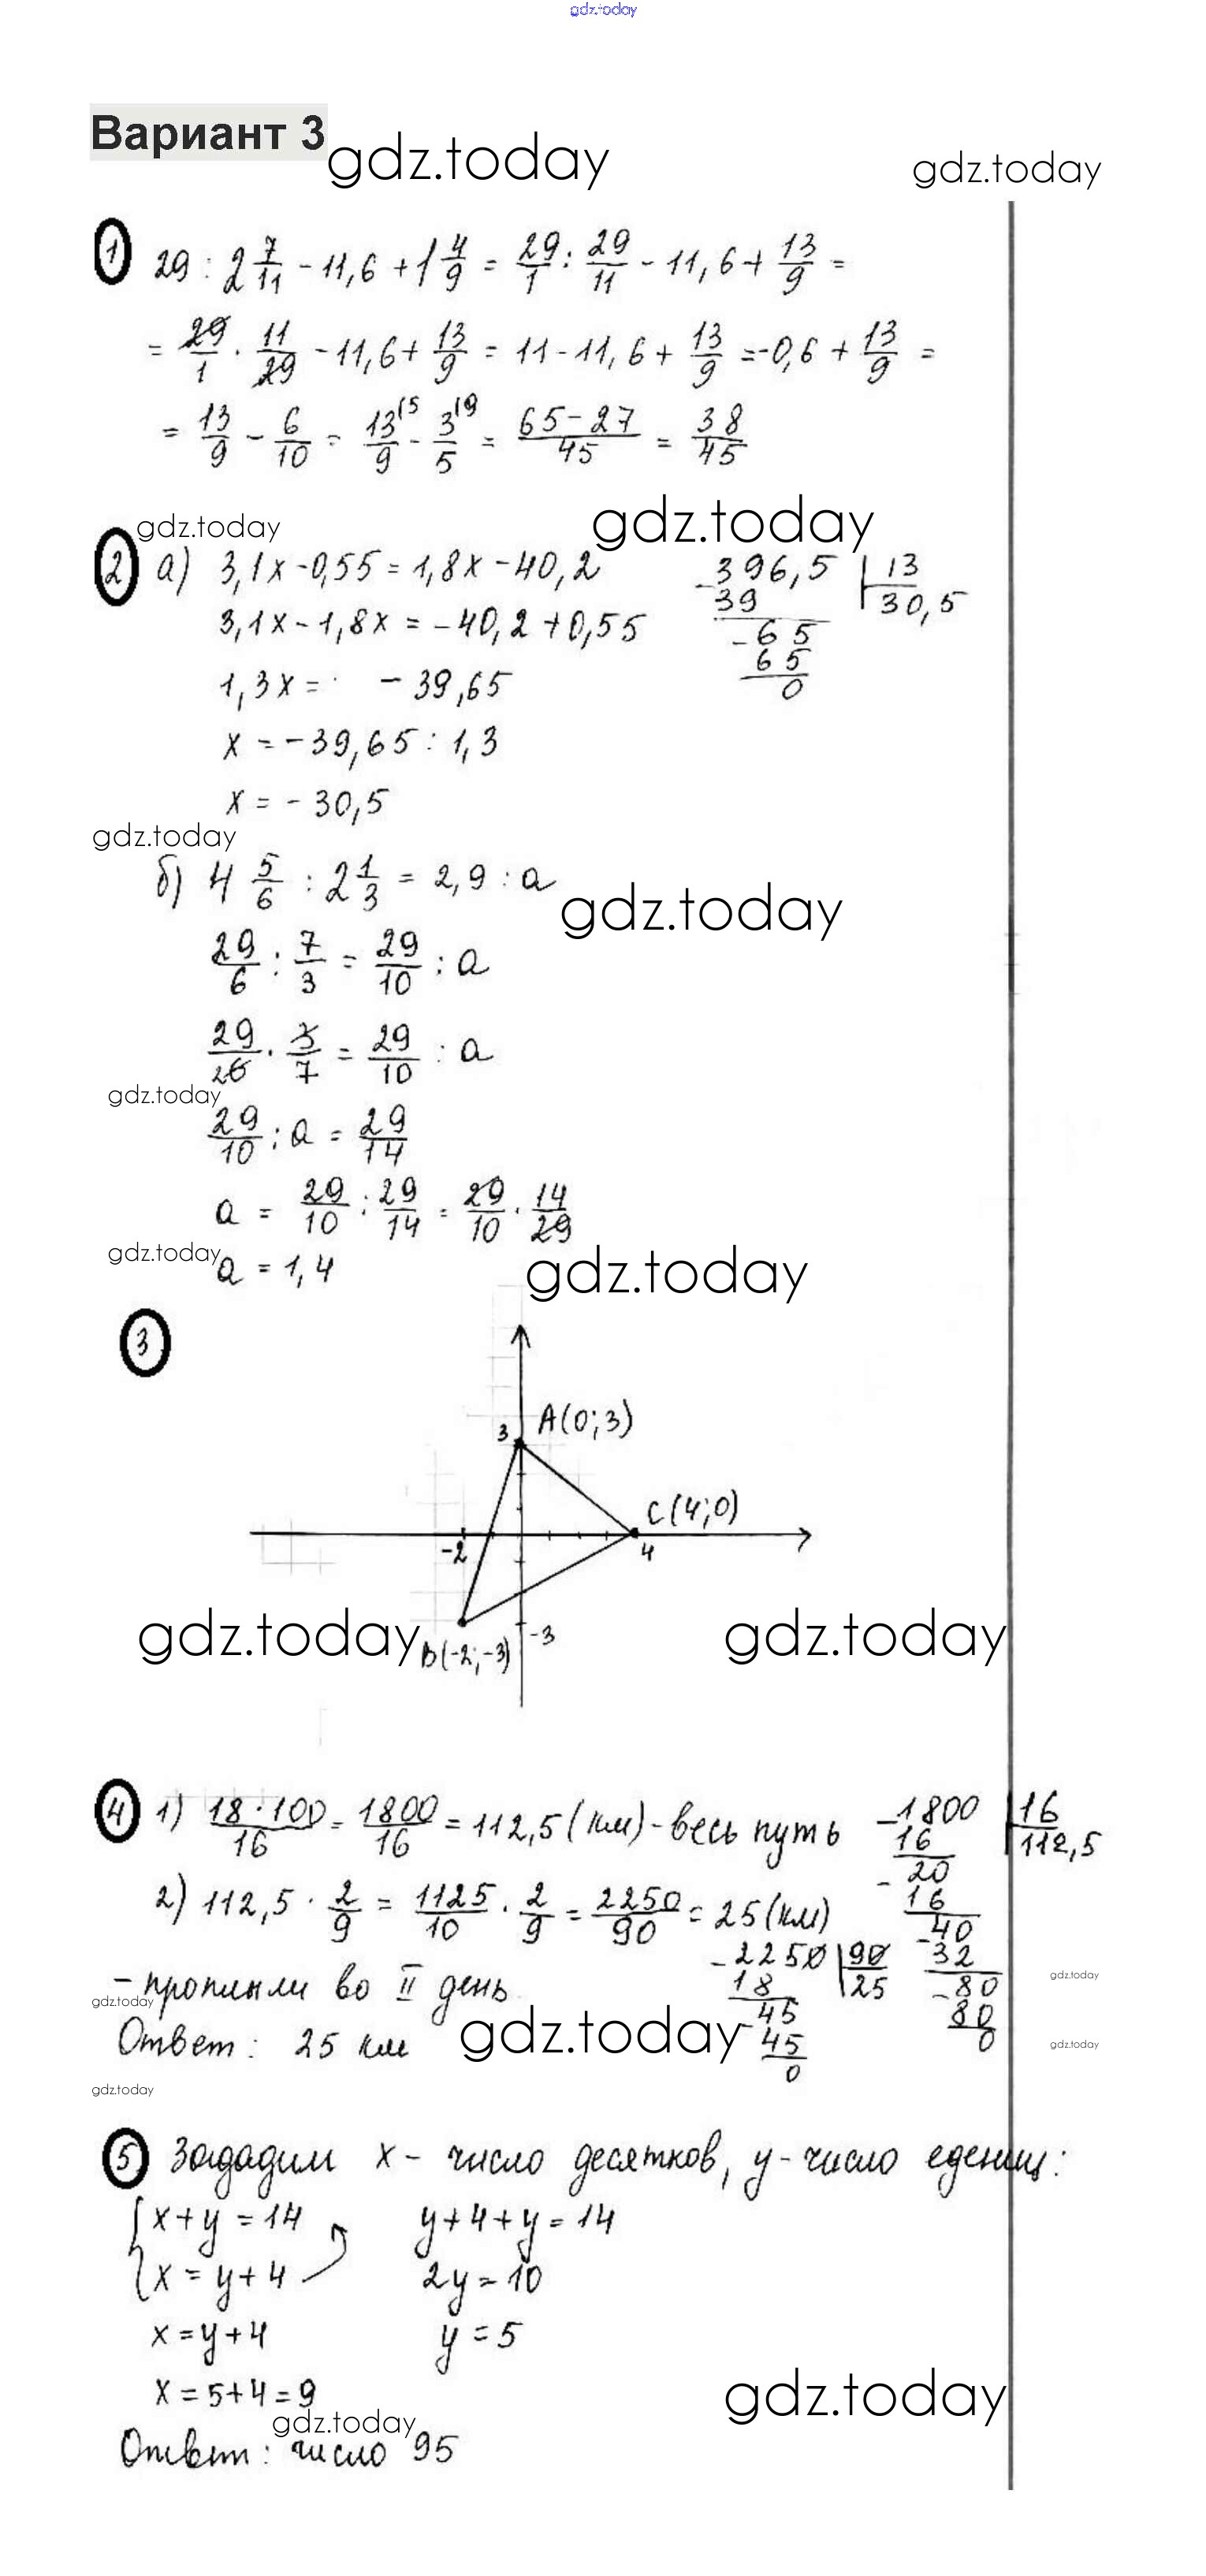 gdz.today
Вариант 3
gdz.today
gdz.today
1 29 : 2 7/11 - 11,6 + 1 4/9 = 29/1 : 29/11 - 11,6 + 13/9 =
= 29/1 · 11/29 - 11,6 + 13/9 = 11 - 11,6 + 13/9 = -0,6 + 13/9 =
= 13/9 - 6/10 = 13/9 (5 - 3/5 (9 = 65-27/45 = 38/45
gdz.today
gdz.today
2 а) 3,1x - 0,55 = 1,8x - 40,2
3,1x - 1,8x = - 40,2 + 0,55
1,3x = - 39,65
x = - 39,65 : 1,3
x = - 30,5
-396,5 | 13
39 30,5
- 65
65
0
gdz.today
б) 4 5/6 : 2 1/3 = 2,9 : a
gdz.today
29/6 : 7/3 = 29/10 : a
29/26 · 3/7 = 29/10 : a
gdz.today
29/10 : a = 29/14
a = 29/10 : 29/14 = 29/10 · 14/29
gdz.today
a = 1,4
gdz.today
3
3 A(0;3)
C(4;0)
-2 4
-3
B(-2;-3)
gdz.today
gdz.today
4 1) 18·100/16 = 1800/16 = 112,5 (км) - весь путь
2) 112,5 · 2/9 = 1125/10 · 2/9 = 2250/90 = 25 (км)
- проплыли во II день
Ответ: 25 км
-1800 | 16
16 112,5
- 20
16
-40
-32
- 80
80
0
-2250 | 90
18 25
45
-45
0
gdz.today
gdz.today
gdz.today
gdz.today
gdz.today
5 Зададим x - число десятков, y - число едениц:
x + y = 14 y + 4 + y = 14
x = y + 4 2y = 10
x = y + 4 y = 5
x = 5 + 4 = 9
gdz.today
gdz.today
Ответ: число 95